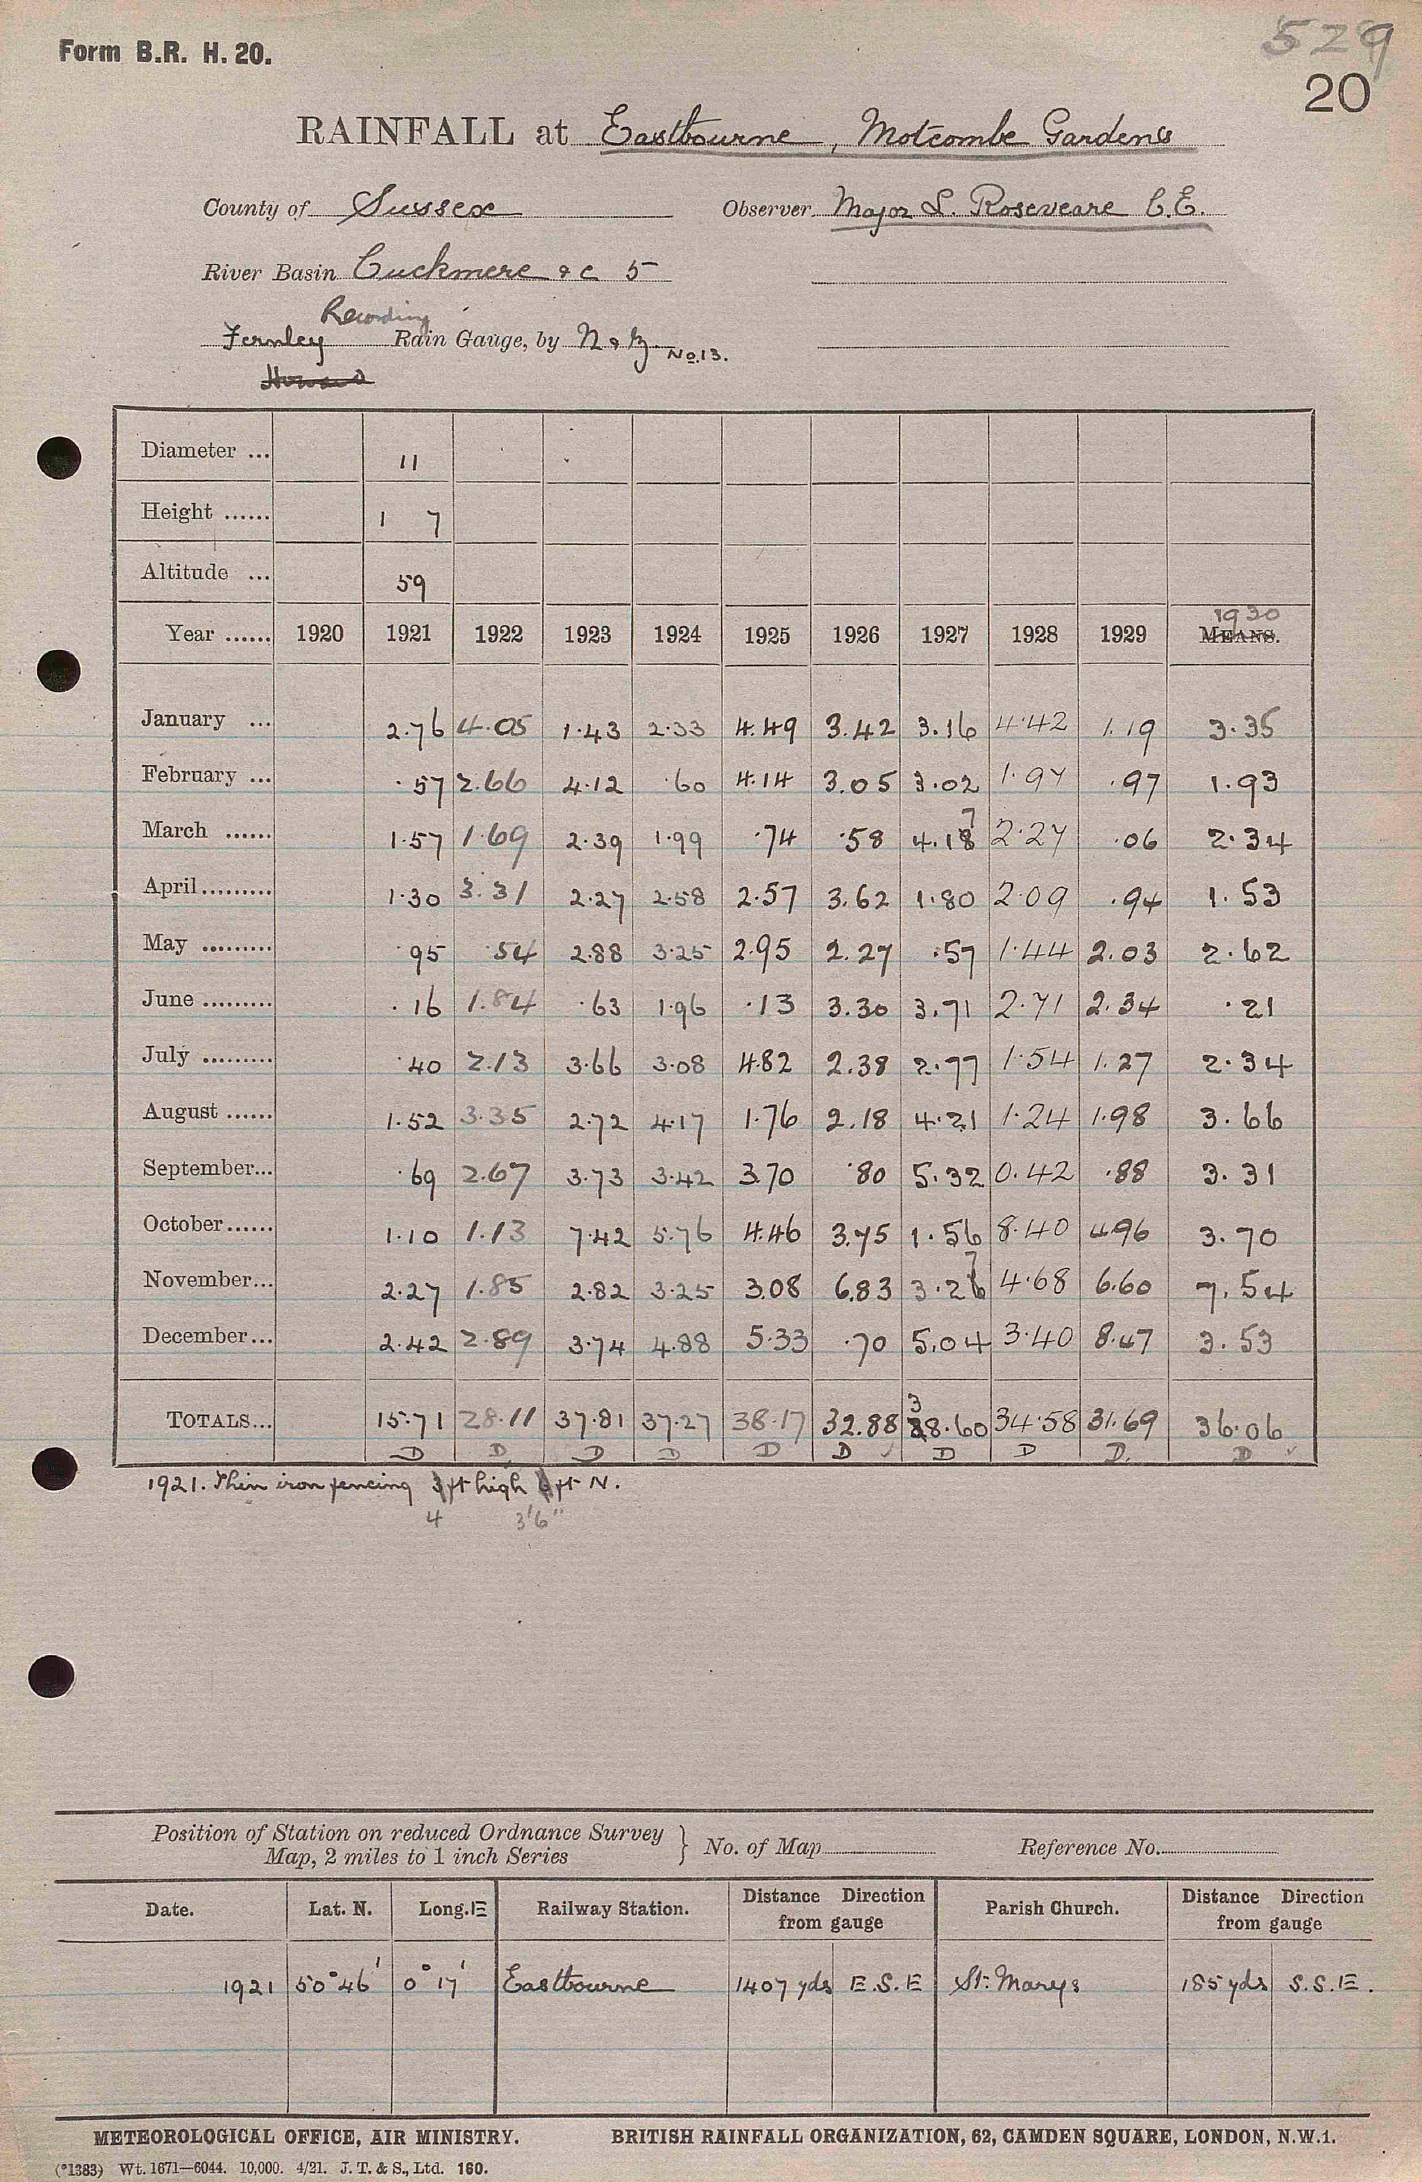 529
Form B.R. H. 20.
20
RAINFALL at Eastbourne, Motcombe Gardens
County of Sussex Observer Major L. Roseveare C.E.
River Basin Cuckmere &c 5
Recording
Fernley Rain Gauge, by N & Z No. 13.
Howard
Diameter ... 11
Height ...... 1 7
Altitude ... 59
1930
Year ...... 1920 1921 1922 1923 1924 1925 1926 1927 1928 1929 MEANS.
January ... 2.76 4.05 1.43 2.33 4.49 3.42 3.16 4.42 1.19 3.35
February ... .57 2.66 4.12 .60 4.14 3.05 3.02 1.97 .97 1.93
7
March ...... 1.57 1.69 2.39 1.99 .74 .58 4.18 2.27 .06 2.34
April......... 1.30 3.31 2.27 2.58 2.57 3.62 1.80 2.09 .94 1.53
May ......... .95 .54 2.88 3.25 2.95 2.27 .57 1.44 2.03 2.62
June ......... .16 1.84 .63 1.96 .13 3.30 3.71 2.71 2.34 .21
July ......... .40 2.13 3.66 3.08 4.82 2.38 2.77 1.54 1.27 2.34
August ...... 1.52 3.35 2.72 4.17 1.76 2.18 4.21 1.24 1.98 3.66
September... .69 2.67 3.73 3.42 3.70 .80 5.32 0.42 .88 3.31
October...... 1.10 1.13 7.42 5.76 4.46 3.75 1.56 8.40 4.96 3.70
7
November... 2.27 1.85 2.82 3.25 3.08 6.83 3.26 4.68 6.60 7.54
December... 2.42 2.89 3.74 4.88 5.33 .70 5.04 3.40 8.47 3.53
3
TOTALS... 15.71 28.11 37.81 37.27 38.17 32.88 38.60 34.58 31.69 36.06
D D D D D D D D D. D
1921. Thin iron fencing 3ft high 6ft N.
4 3'6"
Position of Station on reduced Ordnance Survey
Map, 2 miles to 1 inch Series } No. of Map Reference No.
Date. Lat. N. Long. E Railway Station. Distance Direction from gauge Parish Church. Distance Direction from gauge
1921 50° 46' 0° 17' Eastbourne 1407 yds E.S.E St. Marys 185 yds S.S.E.
METEOROLOGICAL OFFICE, AIR MINISTRY. BRITISH RAINFALL ORGANIZATION, 62, CAMDEN SQUARE, LONDON, N.W.1.
(*1383) Wt. 1671—6044. 10,000. 4/21. J. T. & S., Ltd. 160.